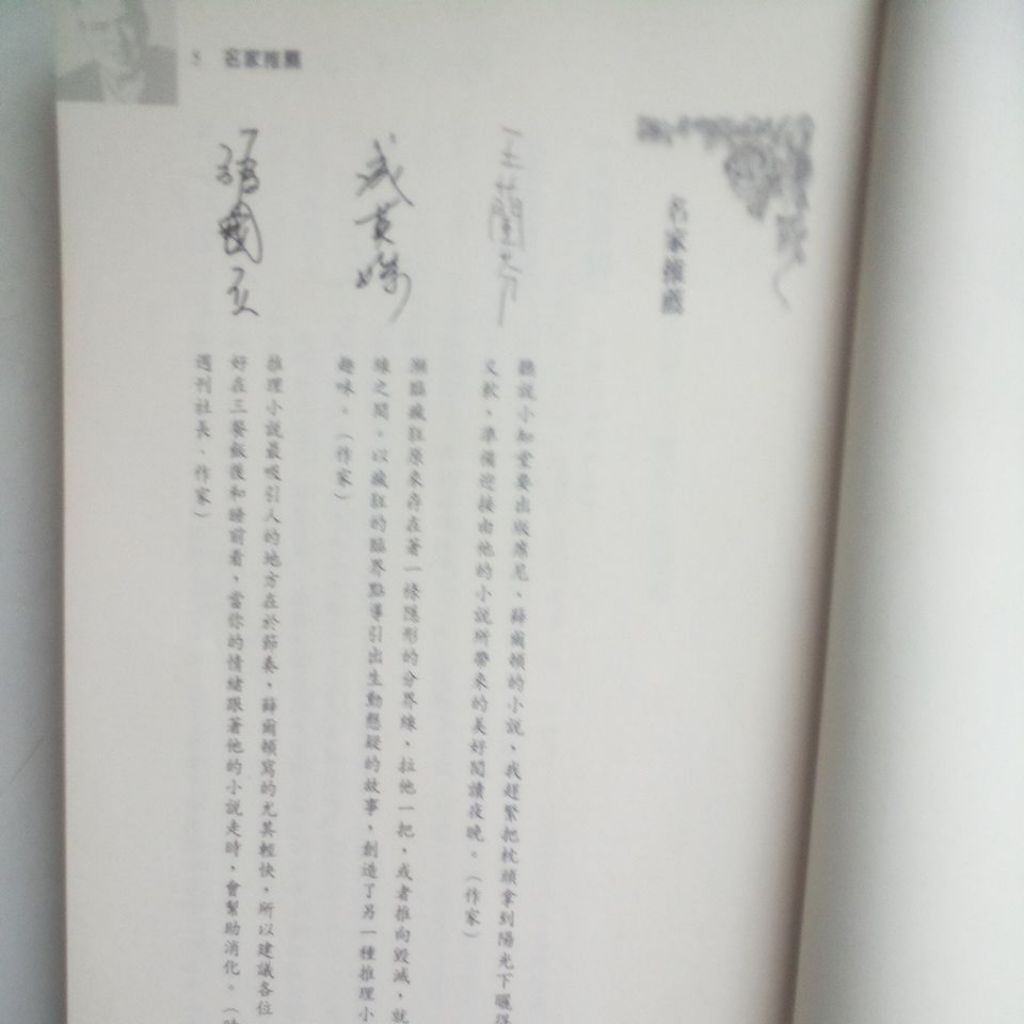 5 名家推薦
名家推薦
王蘭芬
聽說小知堂要出版席尼．薛爾頓的小說，我趕緊把枕頭拿到陽光下曬得
又軟，準備迎接由他的小說所帶來的美好閱讀夜晚。（作家）
成英姝
瀕臨瘋狂原來存在著一條隱形的分界線，拉他一把，或者推向毀滅，就
線之間。以瘋狂的臨界點導引出生動懸疑的故事，創造了另一種推理小
趣味。（作家）
張國立
推理小說最吸引人的地方在於節奏，薛爾頓寫的尤其輕快，所以建議各位
好在三餐飯後和睡前看，當你的情緒跟著他的小說走時，會幫助消化。（
週刊社長、作家）